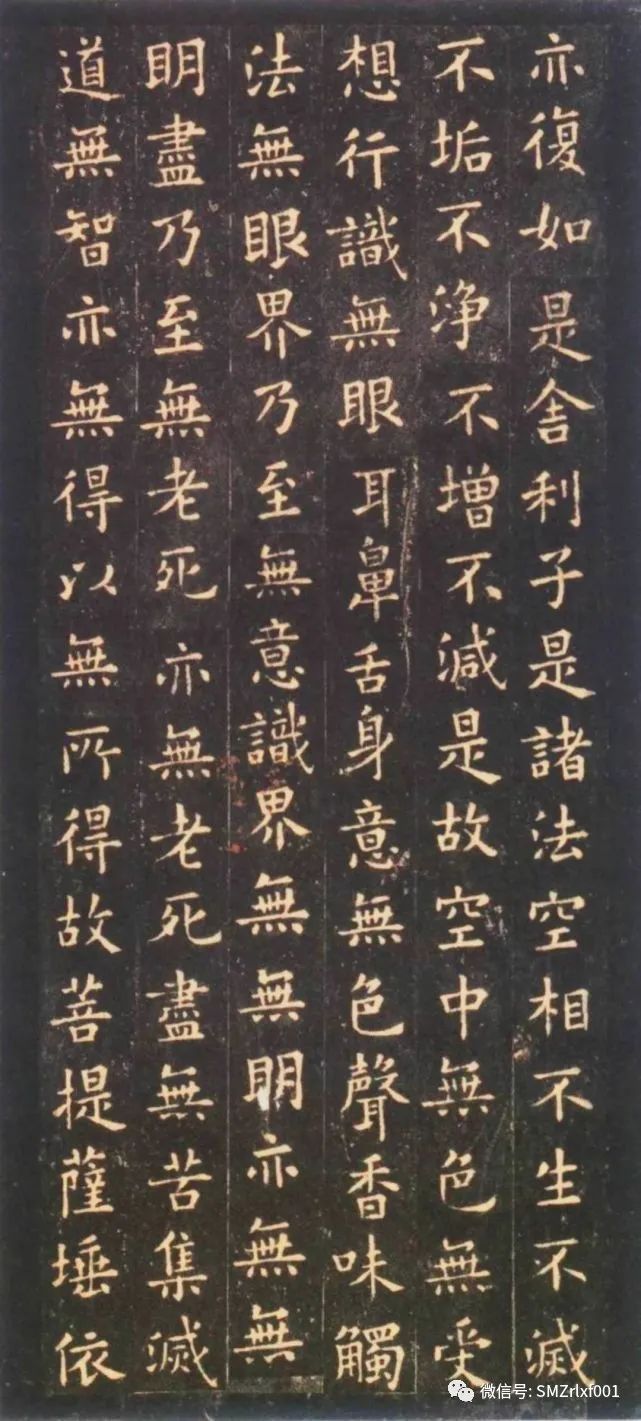 亦復如是舍利子是諸法空相不生不滅
不垢不淨不增不減是故空中無色無受
想行識無眼耳鼻舌身意無色聲香味觸
法無眼界乃至無意識界無無明亦無無
明盡乃至無老死亦無老死盡無苦集滅
道無智亦無得以無所得故菩提薩埵依
微信号: SMZrlxf001